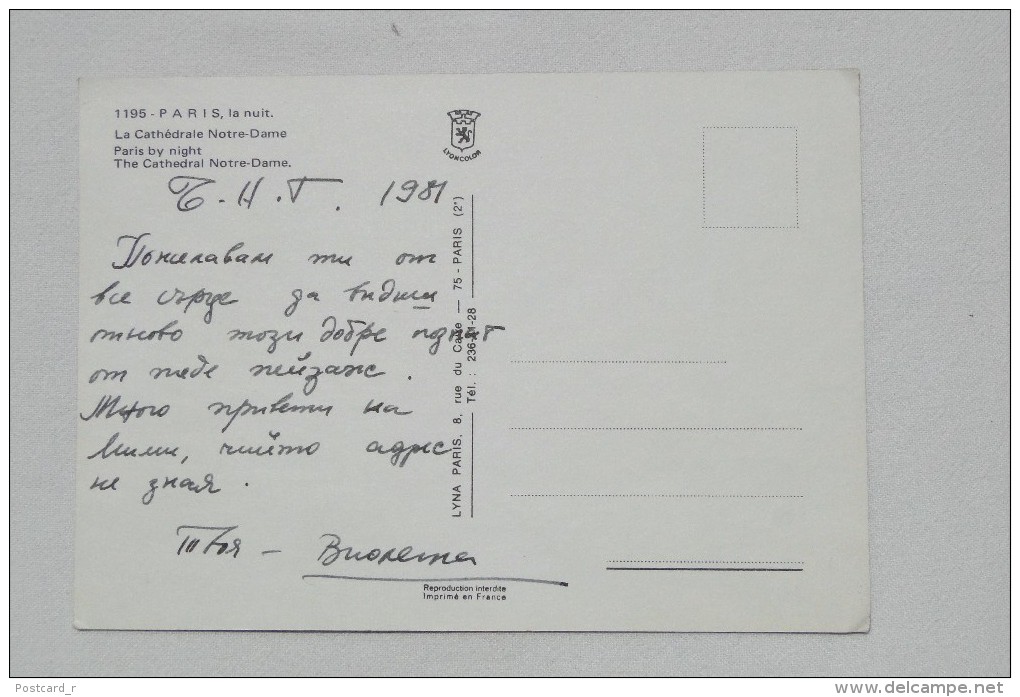 1195 - PARIS, la nuit.
La Cathédrale Notre-Dame
Paris by night
The Cathedral Notre-Dame.
LYONCOLOR
Ч.Н.Г. 1981
Пожелавам ти от
все сърце да видиш
отново този добре познат
от тебе пейзаж.
Много привети на
Мими, чийто адрес
не зная.
Твоя - Виолета
LYNA PARIS, 8, rue du Caire — 75 - PARIS (2e)
Tél. : 236-41-28
Reproduction interdite
Imprimé en France
Postcard_r
www.delcampe.net